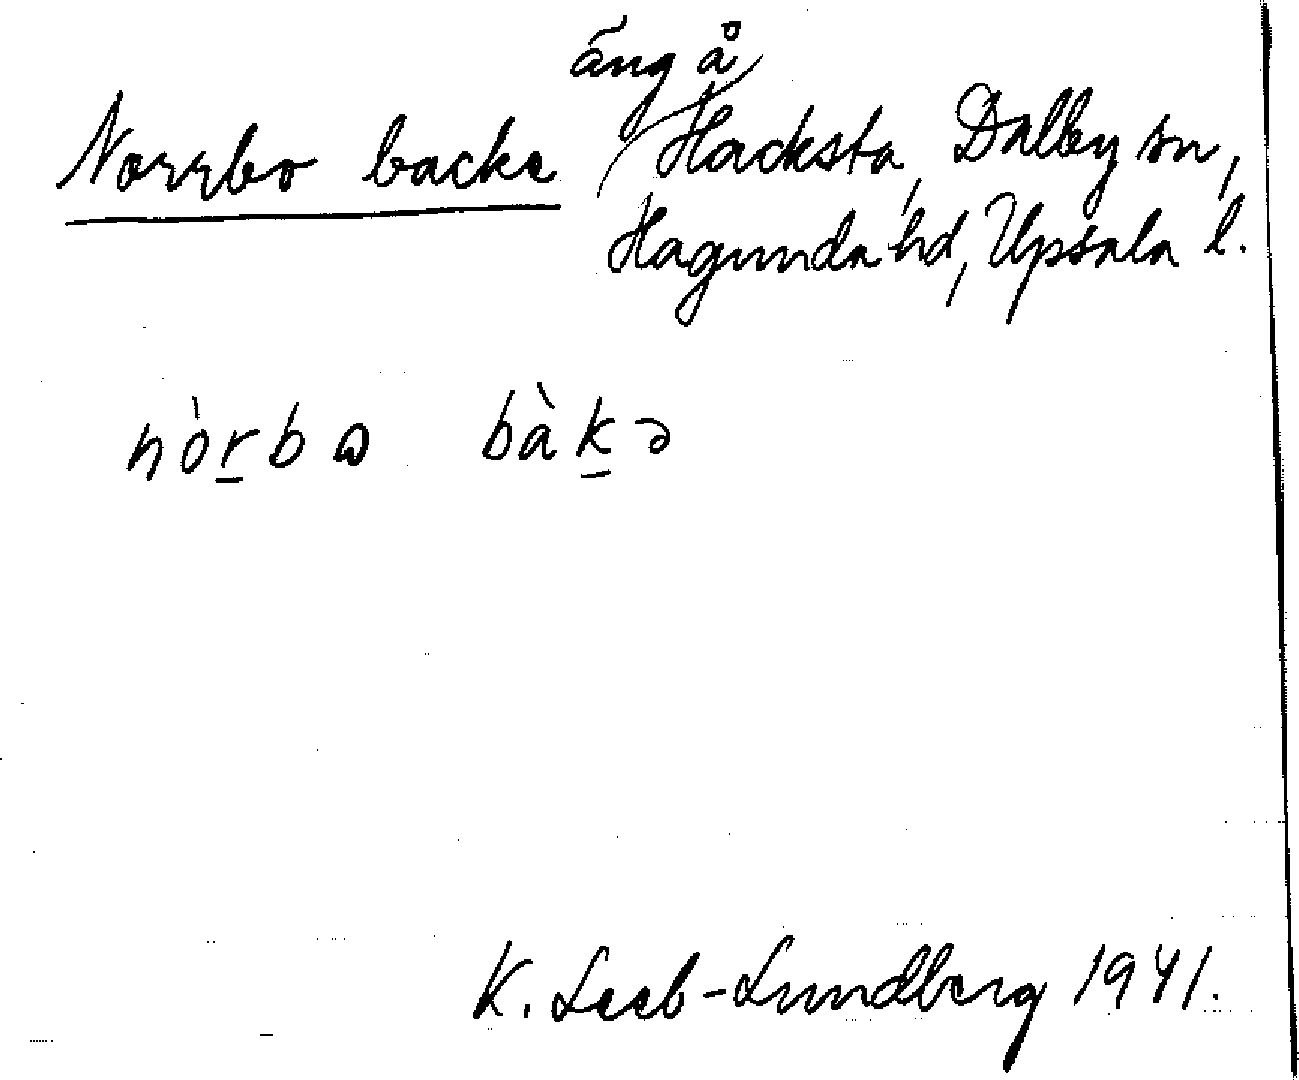 äng å
Norrbo backe Hacksta, Dalby sn,
Hagunda hd, Upsala l.
nòr̲bɷ bàk̲ə
K. Leeb-Lundberg 1941.